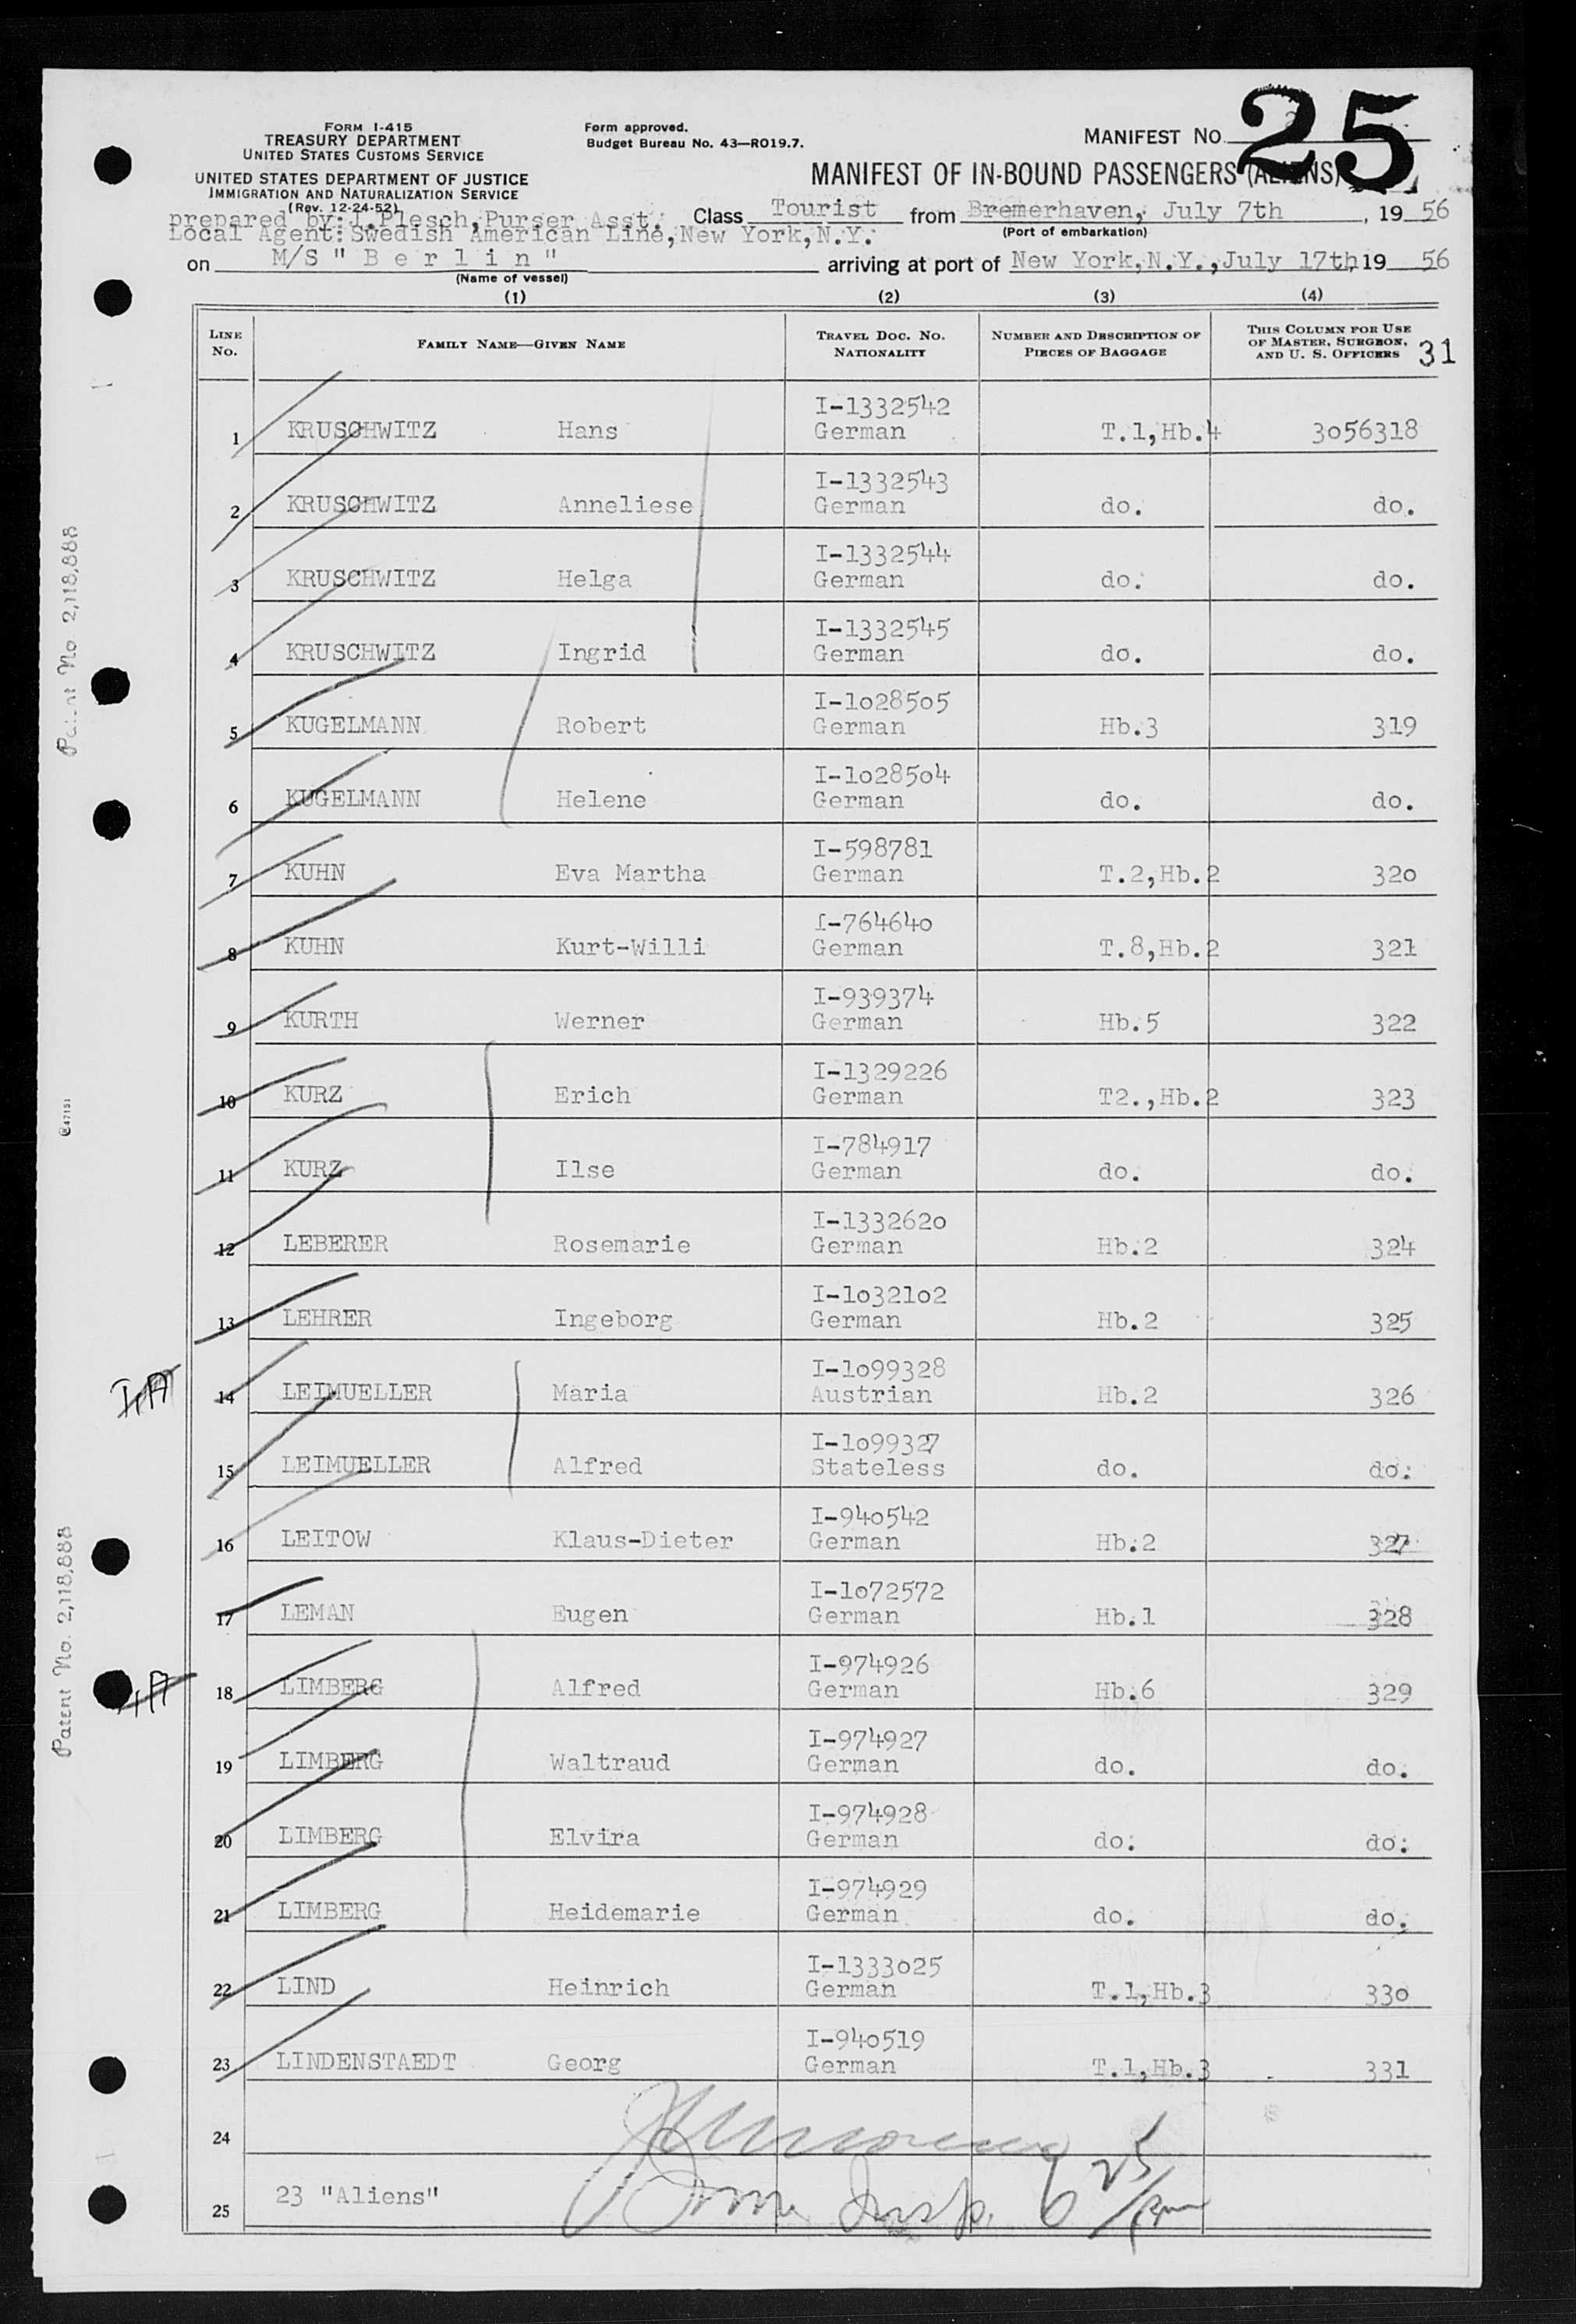 25
FORM I-415
TREASURY DEPARTMENT
UNITED STATES CUSTOMS SERVICE
UNITED STATES DEPARTMENT OF JUSTICE
IMMIGRATION AND NATURALIZATION SERVICE
(Rev. 12-24-52)
Form approved.
Budget Bureau No. 43—RO19.7.
MANIFEST NO.
MANIFEST OF IN-BOUND PASSENGERS (ALIENS)
prepared by: I.Plesch, Purser Asst. Class Tourist from Bremerhaven, July 7th, 19 56
Local Agent: Swedish American Line, New York, N.Y.
(Port of embarkation)
on M/S "B e r l i n" arriving at port of New York, N.Y., July 17th 19 56
(Name of vessel)
(1) (2) (3) (4)
LINE No. FAMILY NAME—GIVEN NAME TRAVEL DOC. NO. NATIONALITY NUMBER AND DESCRIPTION OF PIECES OF BAGGAGE THIS COLUMN FOR USE OF MASTER, SURGEON, AND U. S. OFFICERS 31
I-1332542
1 KRUSCHWITZ Hans German T.1,Hb.4 3056318
I-1332543
2 KRUSCHWITZ Anneliese German do. do.
I-1332544
3 KRUSCHWITZ Helga German do. do.
I-1332545
4 KRUSCHWITZ Ingrid German do. do.
I-1028505
5 KUGELMANN Robert German Hb.3 319
I-1028504
6 KUGELMANN Helene German do. do.
I-598781
7 KUHN Eva Martha German T.2,Hb.2 320
I-764640
8 KUHN Kurt-Willi German T.8,Hb.2 321
I-939374
9 KURTH Werner German Hb.5 322
I-1329226
10 KURZ Erich German T2.,Hb.2 323
I-784917
11 KURZ Ilse German do. do.
I-1332620
12 LEBERER Rosemarie German Hb.2 324
I-1032102
13 LEHRER Ingeborg German Hb.2 325
I-1099328
14 LEIMUELLER Maria Austrian Hb.2 326
I-1099327
15 LEIMUELLER Alfred Stateless do. do.
I-940542
16 LEITOW Klaus-Dieter German Hb.2 327
I-1072572
17 LEMAN Eugen German Hb.1 328
I-974926
18 LIMBERG Alfred German Hb.6 329
I-974927
19 LIMBERG Waltraud German do. do.
I-974928
20 LIMBERG Elvira German do. do.
I-974929
21 LIMBERG Heidemarie German do. do.
I-1333025
22 LIND Heinrich German T.1,Hb.3 330
I-940519
23 LINDENSTAEDT Georg German T.1,Hb.3 331
24
25 23 "Aliens"
Imm Insp. 6 25
Patent No. 2,118,888
Patent No. 2,118,888